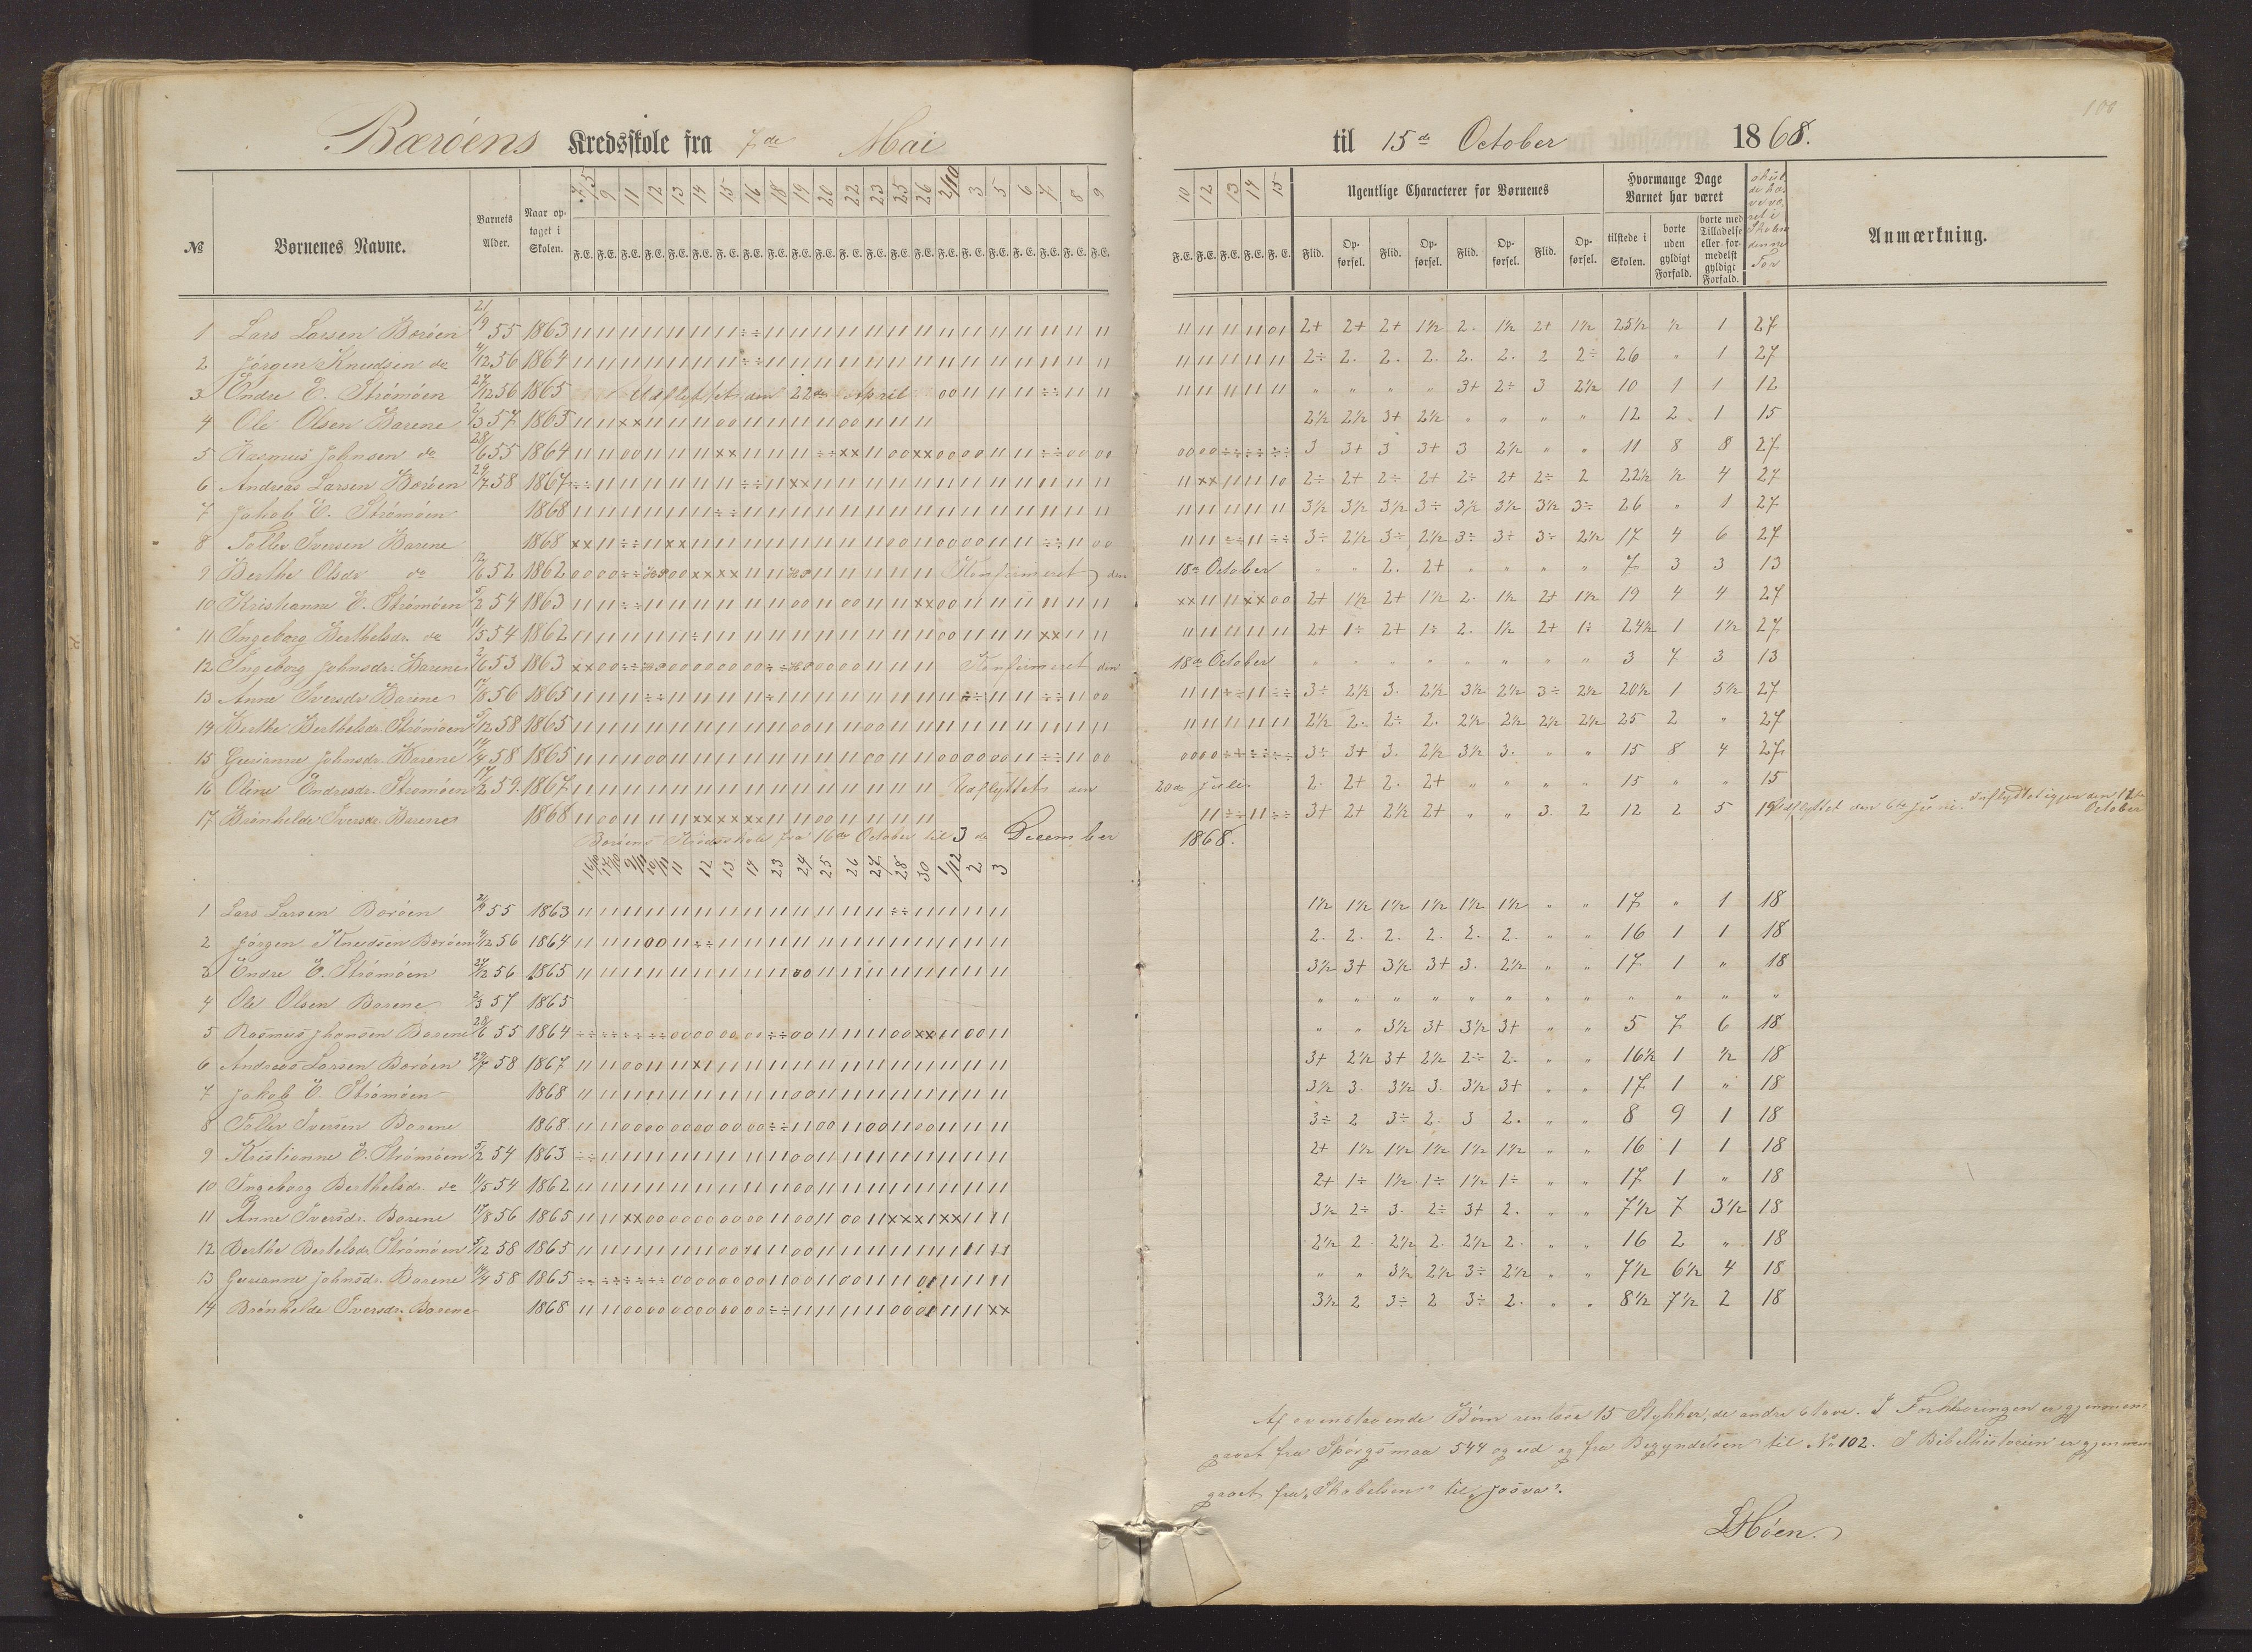 100
Barøens Kredsskole fra 7de Mai til 15de October 1868.
№ Børnenes Navne. Barnets Alder. Naar optaget i Skolen. 7/5 9 11 12 13 14 15 16 18 19 20 22 23 25 26 2/10 3 5 6 7 8 9 10 12 13 14 15 Ugentlige Characterer for Børnenes Hvormange Dage Barnet har været Anmærkning.
F.E. F.E. F.E. F.E. F.E. F.E. F.E. F.E. F.E. F.E. F.E. F.E. F.E. F.E. F.E. F.E. F.E. F.E. F.E. F.E. F.E. F.E. F.E. F.E. F.E. F.E. F.E. Flid. Opførsel. Flid. Opførsel. Flid. Opførsel. Flid. Opførsel. tilstede i Skolen. borte uden gyldigt Forfald. borte med Tilladelse eller formedelst gyldigt Forfald.
1 Lars Larsen Barøen 21/9 55 1863 2+ 2+ 2+ 1½ 2. 1½ 2+ 1½ 25½ ½ 1 27
2 Jørgen Knudsen do 4/12 56 1864 2÷ 2. 2. 2. 2. 2. 2 2÷ 26 " 1 27
3 Endre E. Strømøen 27/12 56 1865 Udflyttet den 22de April " " " " 3+ 2÷ 3 2½ 10 1 1 12
4 Ole Olsen Barene 2/3 57 1865 2½ 2½ 3+ 2½ " " " " 12 2 1 15
5 Rasmus Johnsen do 28/6 55 1864 3 3+ 3 3+ 3 2½ " " 11 8 8 27
6 Andreas Larsen Barøen 29/7 58 1867 2÷ 2+ 2÷ 2+ 2÷ 2+ 2÷ 2 22½ ½ 4 27
7 Jakob E. Strømøen 1868 3½ 3½ 3½ 3÷ 3½ 3½ 3½ 3÷ 26 " 1 27
8 Tollev Iversen Barene 1868 3÷ 2½ 3÷ 2½ 3÷ 3+ 3÷ 2½ 17 4 6 27
9 Berthe Olsdr do 12/6 52 1862 Konfirmeret den 18de October " " 2. 2+ " " " " 7 3 3 13
10 Kristianne E. Strømøen 5/2 54 1863 2+ 1½ 2+ 1½ 2. 1½ 2+ 1½ 19 4 4 27
11 Ingeborg Berthelsdr. do 11/5 54 1862 2+ 1÷ 2+ 1÷ 2. 1½ 2+ 1÷ 24½ 1 1½ 27
12 Ingeborg Johnsdr. Barene 2/6 53 1863 Konfirmeret den 18de October " " " " " " " " 3 7 3 13
13 Anne Iversdr Barene 17/8 56 1865 3÷ 2½ 3. 2½ 3½ 2½ 3÷ 2½ 20½ 1 5½ 27
14 Berthe Berthelsdr. Strømøen 5/12 58 1865 2½ 2. 2÷ 2. 2½ 2½ 2½ 2½ 25 2 " 27
15 Gurianne Johnsdr. Barene 14/4 58 1865 3÷ 3+ 3. 2½ 3½ 3. " " 15 8 4 27
16 Oline Endresdr. Strømøen 17/2 59. 1867 Udflyttet den 20de Juli. 2. 2+ 2. 2+ " " " " 15 " " 15
17 Brønhelde Iversdr. Barene 1868 3+ 2+ 2½ 2+ " " 3. 2 12 2 5 19 Udflyttet den 6te Juni. Indflyttet igjen den 12te October
Barøens Kredsskole fra 16de October til 3de December 1868.
1 Lars Larsen Barøen 21/9 55 1863 1½ 1½ 1½ 1½ 1½ 1½ " " 17 " 1 18
2 Jørgen Knudsen Barøen 4/12 56 1864 2. 2. 2. 2. 2. 2. " " 16 1 1 18
3 Endre E. Strømøen 27/12 56 1865 3½ 3+ 3½ 3+ 3. 2½ " " 17 1 " 18
4 Ole Olsen Barene 2/3 57 1865 " " " " " " " " " " " "
5 Rasmus Jhonsen Barene 28/6 55 1864 " " 3½ 3+ 3½ 3+ " " 5 7 6 18
6 Andreas Larsen Barøen 29/7 58 1867 3+ 2½ 3+ 2½ 2÷ 2. " " 16½ 1 ½ 18
7 Jakob E. Strømøen 1868 3½ 3. 3½ 3. 3½ 3+ " " 17 1 " 18
8 Tollev Iversen Barene 1868 3÷ 2 3÷ 2. 3 2. " " 8 9 1 18
9 Kristianne E. Strømøen 5/2 54 1863 2+ 1½ 1½ 1½ 1½ 1½ " " 16 1 1 18
10 Ingeborg Berthelsdr. do 11/5 54 1862 2+ 1÷ 1½ 1÷ 1½ 1÷ " " 17 1 " 18
11 Anne Iversdr. Barene 17/8 56 1865 3½ 2÷ 3. 2÷ 3+ 2. " " 7½ 7 3½ 18
12 Berthe Bertelsdr. Strømøen 5/12 58 1865 2½ 2 2½ 2. 2½ 2. " " 16 2 " 18
13 Gurianne Johnsdr. Barene 14/4 58 1865 " " 3½ 2½ 3÷ 2½ " " 7½ 6½ 4 18
14 Brønhelde Iversdr. Barene 1868 3½ 2 3÷ 2 3÷ 2. " " 8½ 7½ 2 18
Af ovenstaaende Børn renlæse 15 Stykker, de andre stave. I Forklaringen er gjennem
gaaet fra Spørgsmaa 544 og ud og fra Begyndelsen til No 102. I Bibelhistorien er gjennem
gaaet fra „Skabelsen" til „Josva".
LHøen.